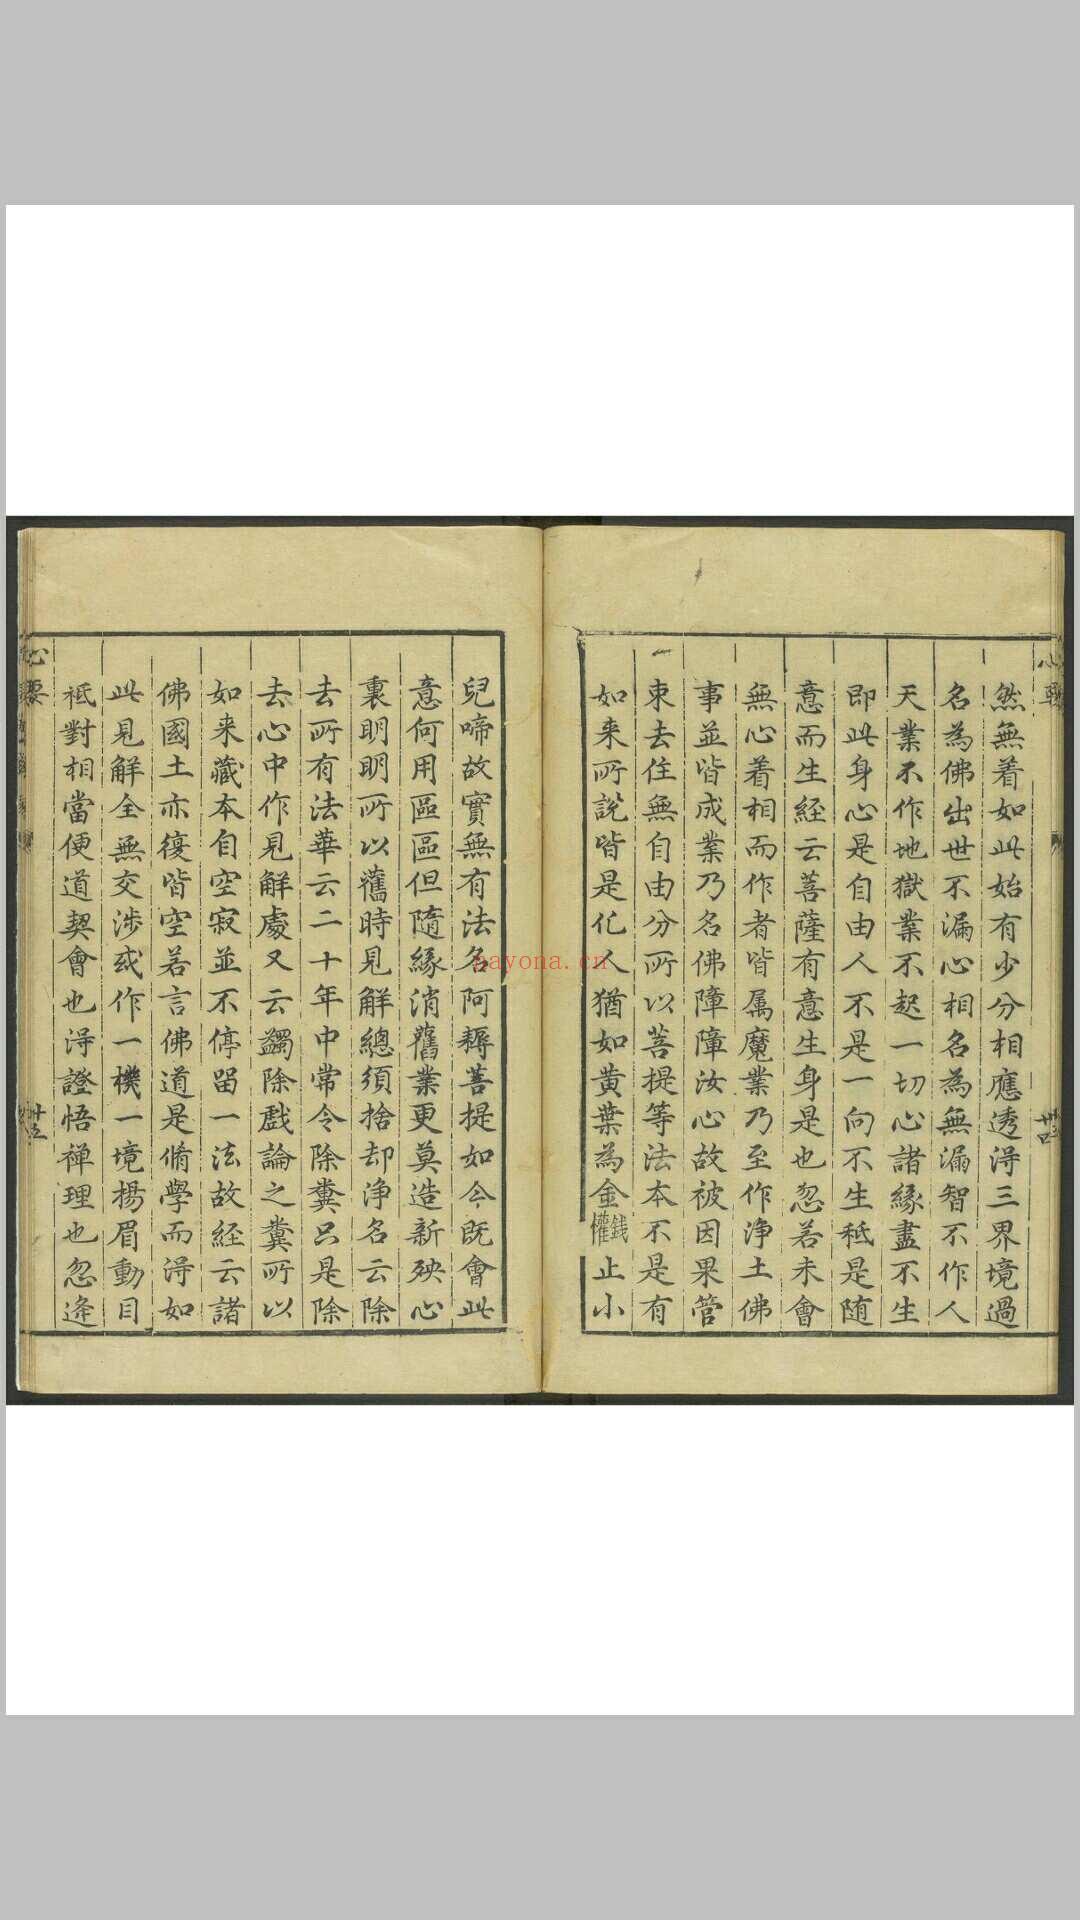 然無着如此始有少分相應透淂三界境過
名為佛出世不漏心相名為無漏智不作人
天業不作地獄業不起一切心諸緣盡不生
即此身心是自由人不是一向不生秪是随
意而生經云菩薩有意生身是也忽若未會
無心着相而作者皆属魔業乃至作淨土佛
事並皆成業乃名佛障障汝心故被因果管
束去住無自由分所以菩提等法本不是有
如来所說皆是化人猶如黄葉為金錢權止小
兒啼故實無有法名阿耨菩提如今既會此
意何用區區但隨緣消舊業更莫造新殃心
裏明明所以舊時見解總須捨却淨名云除
去所有法華云二十年中常令除糞只是除
去心中作見解處又云蠲除戲論之糞所以
如来藏本自空寂並不停留一法故経云諸
佛國土亦復皆空若言佛道是脩學而淂如
此見解全無交涉或作一機一境揚眉動目
祗對相當便道契會也淂證悟禅理也忽逢
心要
廿四
心要
廿五
nayona.cn